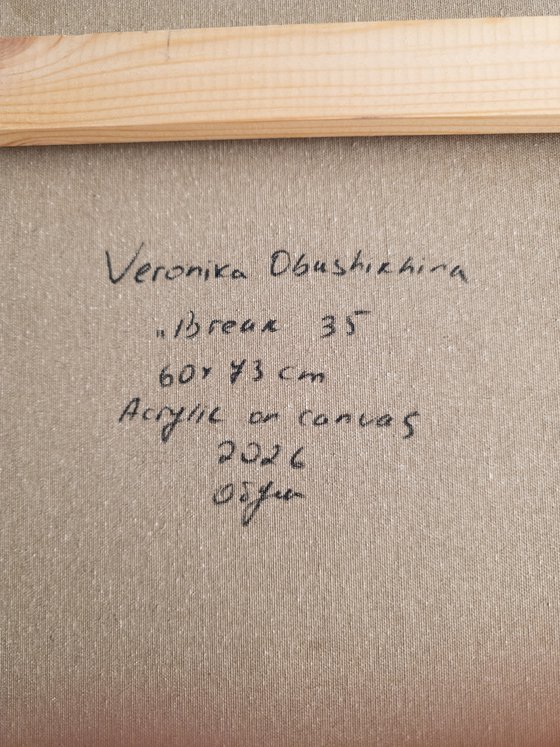 Veronika Obushikhina
„Break 35
60x73 cm
Acrylic on canvas
2026